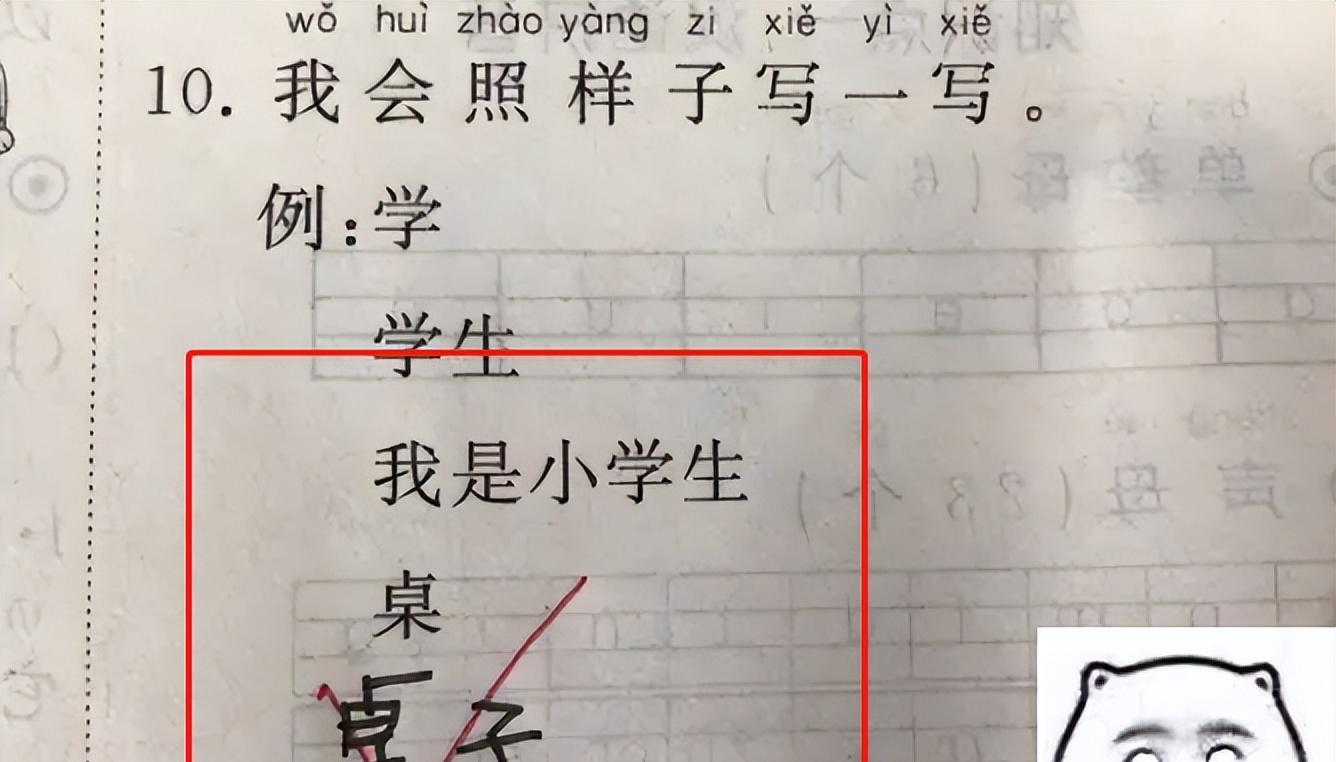 wǒ huì zhào yàng zi xiě yì xiě
10. 我会照样子写一写。
例:学
学生
我是小学生
桌
桌子